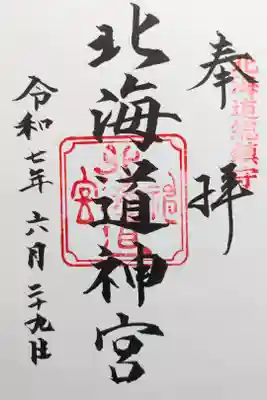 北海道總鎮守
奉拝
北海道神宮
北海道神宮
令和七年六月二十九日